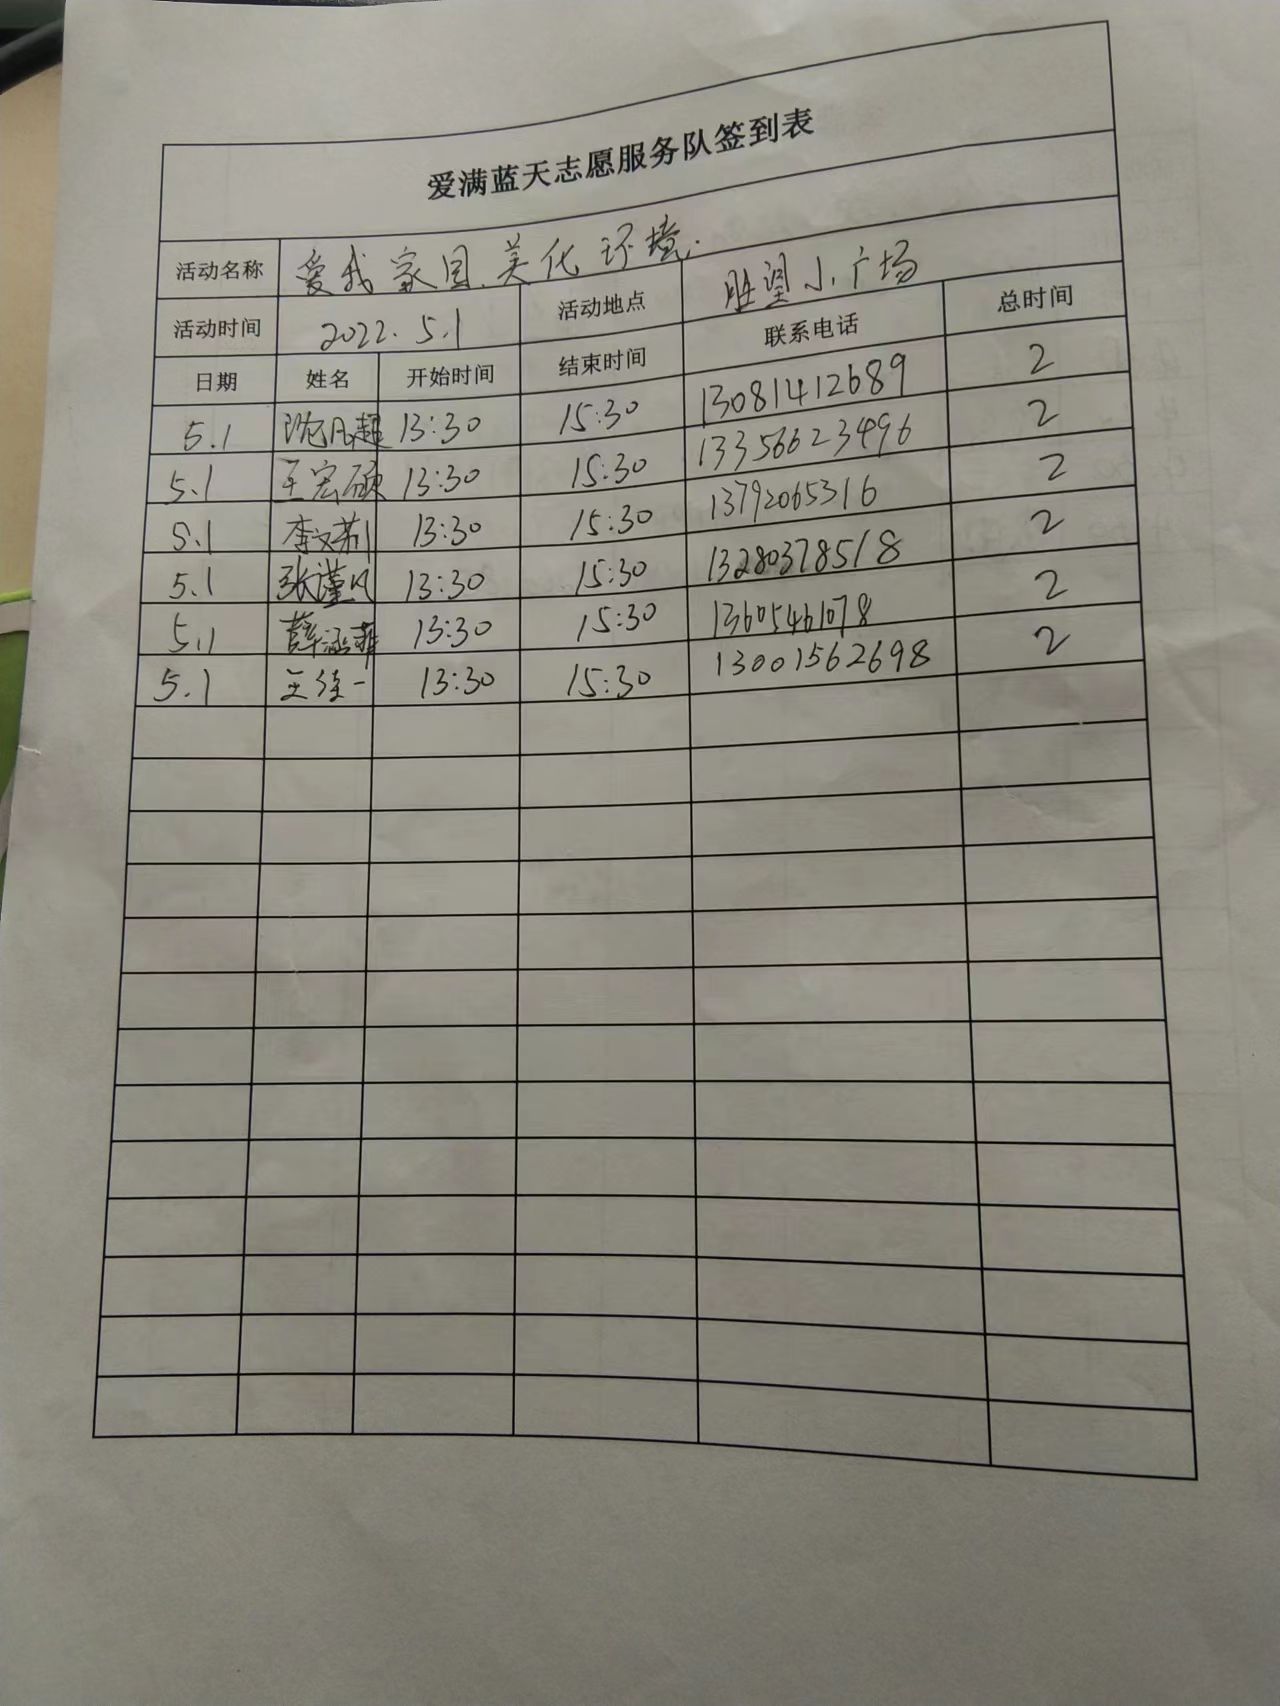 爱满蓝天志愿服务队签到表
活动名称 爱我家园、美化环境.
活动时间 2022.5.1 活动地点 胜望小广场
日期 姓名 开始时间 结束时间 联系电话 总时间
5.1 沈凡超 13:30 15:30 13081412689 2
5.1 王宏硕 13:30 15:30 13356623496 2
5.1 李文荆 13:30 15:30 13792065316 2
5.1 张谨凡 13:30 15:30 13280378518 2
5.1 薛涵菲 13:30 15:30 13605461078 2
5.1 王一 13:30 15:30 13001562698 2